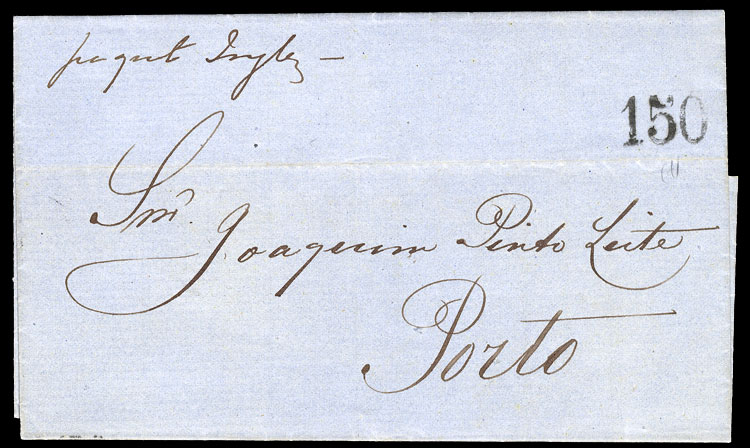 paquet Inglez —
150
Snr. Joaquim Pinto Leite
Porto